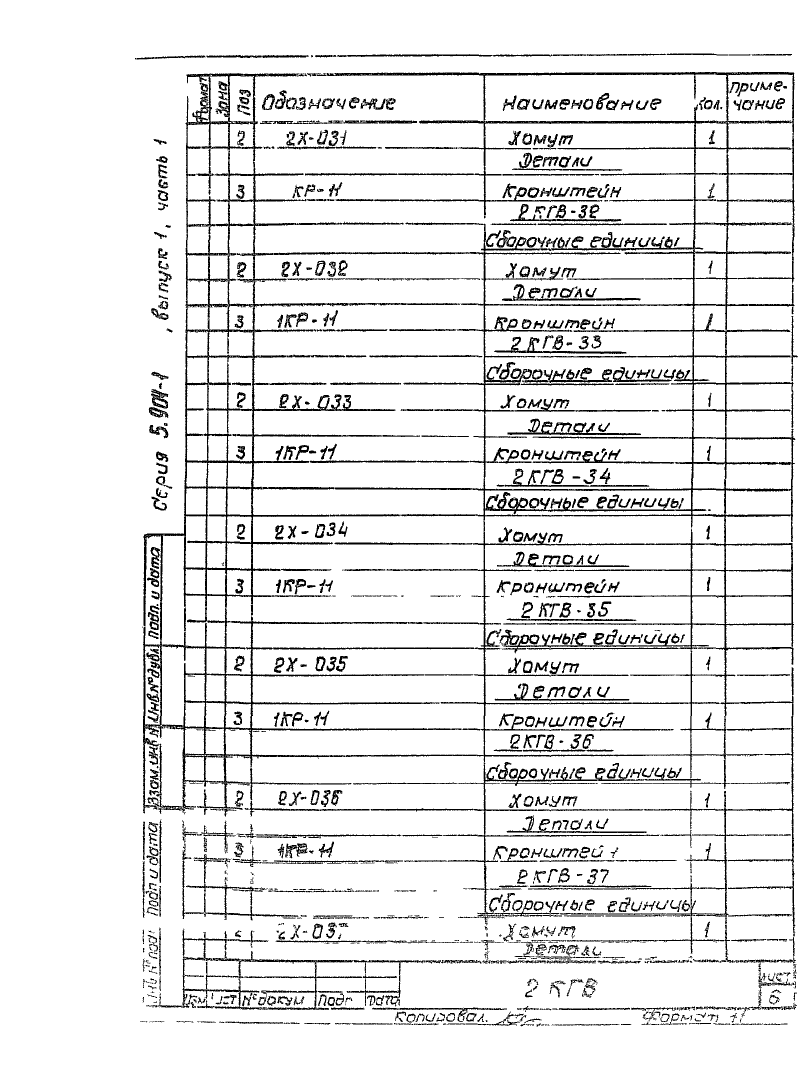 Формат Зона Поз Обозначение Наименование Кол. Приме-
чание
2 2Х-031 Хомут 1
Детали
3 КР-11 Кронштейн 1
2 КГВ-32
Сборочные единицы
2 2Х-032 Хомут 1
Детали
3 1КР-11 Кронштейн 1
2 КГВ-33
Сборочные единицы
2 2Х-033 Хомут 1
Детали
3 1КР-11 Кронштейн 1
2 КГВ-34
Сборочные единицы
2 2Х-034 Хомут 1
Детали
3 1КР-11 Кронштейн 1
2 КГВ-35
Сборочные единицы
2 2Х-035 Хомут 1
Детали
3 1КР-11 Кронштейн 1
2 КГВ-36
Сборочные единицы
2 2Х-036 Хомут 1
Детали
3 1КР-11 Кронштей 1
2 КГВ-37
Сборочные единицы
2Х-037 Хомут 1
Детали
Серия 5.904-1 , выпуск 1, часть 1
Подп. и дата
Инв.№дубл
Взам.инв №
Подп и дата
Инв №подл
Изм Лист №докум Подп Дата
2 КГВ
Лист
6
Копировал.
Формат 11